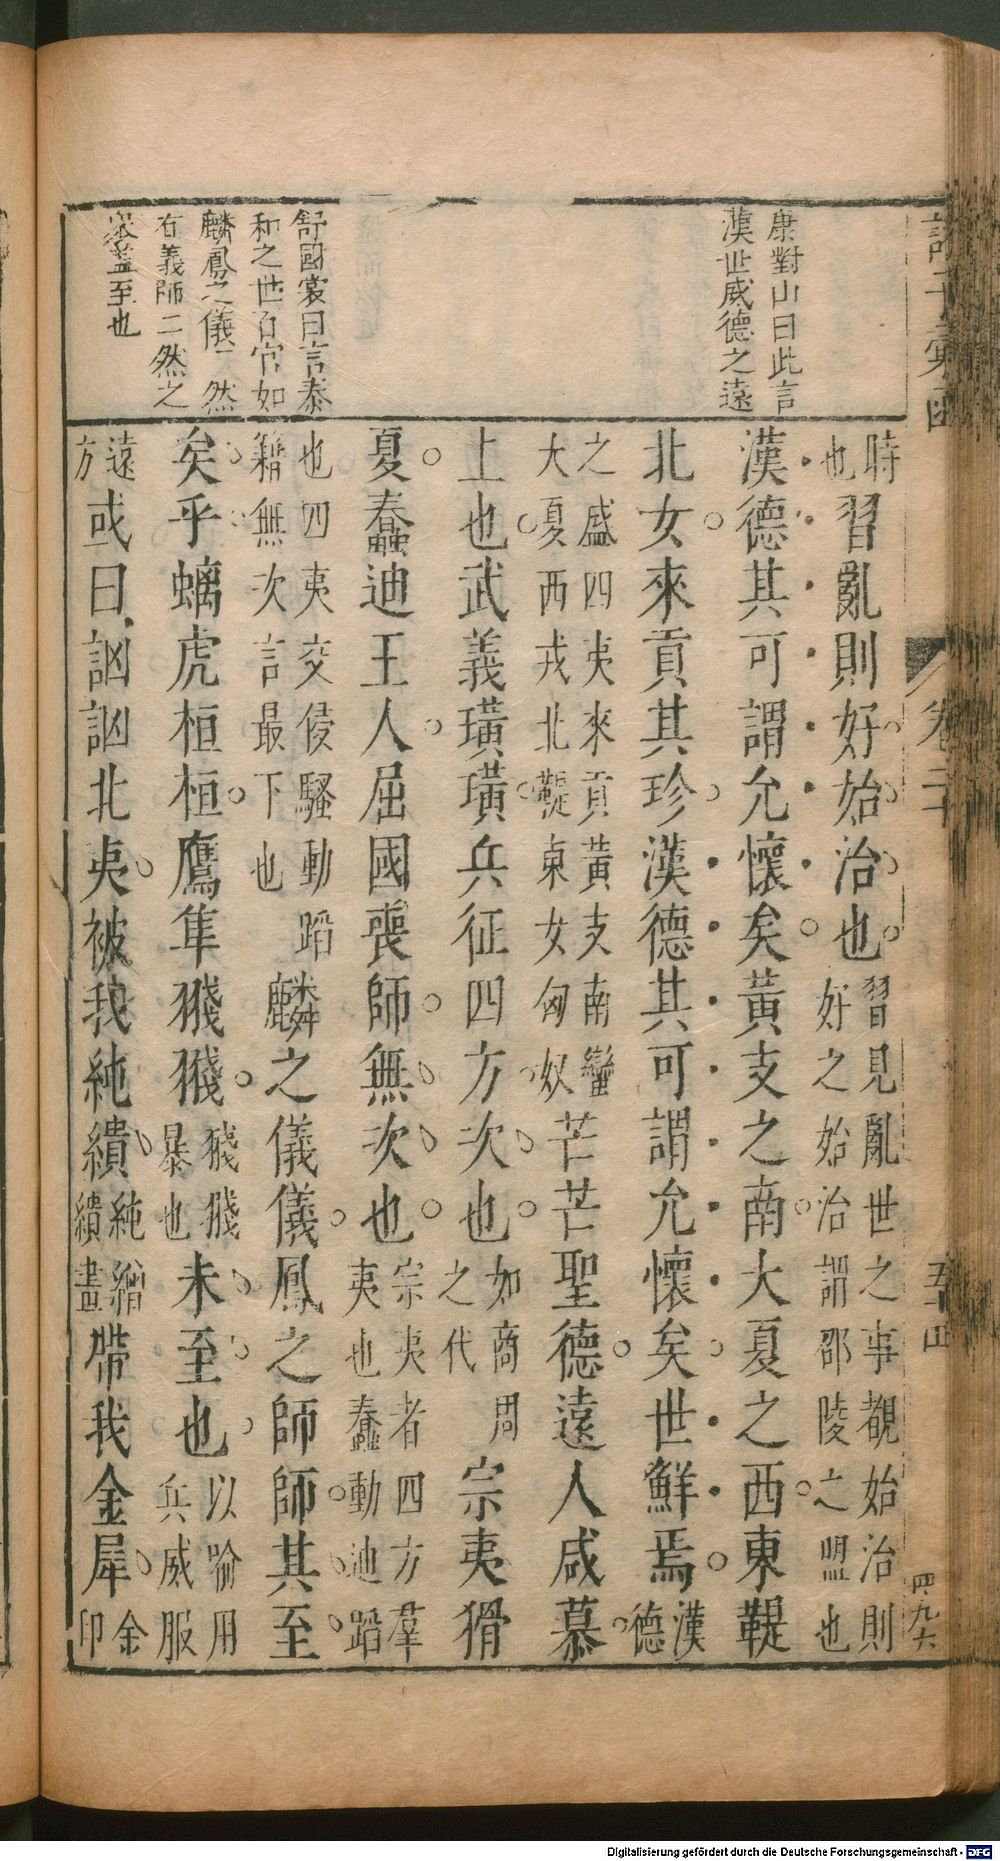 康對山曰此言
漢世威德之遠
舒國裳曰言泰
和之世百官如
麟鳳之儀一然
有義師二然之
衆蓋至也
時也習亂則好始治也習見亂世之事覩始治則好之始治謂邵陵之盟也
漢德其可謂允懷矣黃支之南大夏之西東鞮
北女來貢其珍漢德其可謂允懷矣世鮮焉漢德
之盛四夷來貢黃支南蠻大夏西戎北鞮東女匈奴芒芒聖德遠人咸慕
上也武義璜璜兵征四方次也如商周之代宗夷猾
夏蠢迪王人屈國喪師無次也宗夷者四方羣夷也蠢動迪蹈
也四夷交侵騷動蹈籍無次言最下也麟之儀儀鳳之師師其至
矣乎螭虎桓桓鷹隼㦮㦮㦮㦮暴也未至也以喻用兵威服
遠方或曰訩訩北夷被我純繢純繒繢畫帶我金犀金印
卷二
五十四
四九六
Digitalisierung gefördert durch die Deutsche Forschungsgemeinschaft - DFG